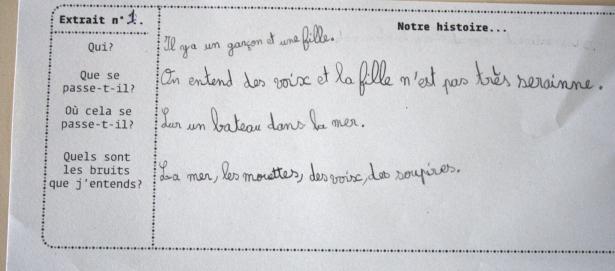 Extrait n° 1.
Notre histoire...
Qui?
Il y a un garçon et une fille.
Que se
passe-t-il?
On entend des voix et la fille n'est pas très serainne.
Où cela se
passe-t-il?
Sur un bateau dans la mer.
Quels sont
les bruits
que j'entends?
La mer, les mouettes, des voix, des soupires.